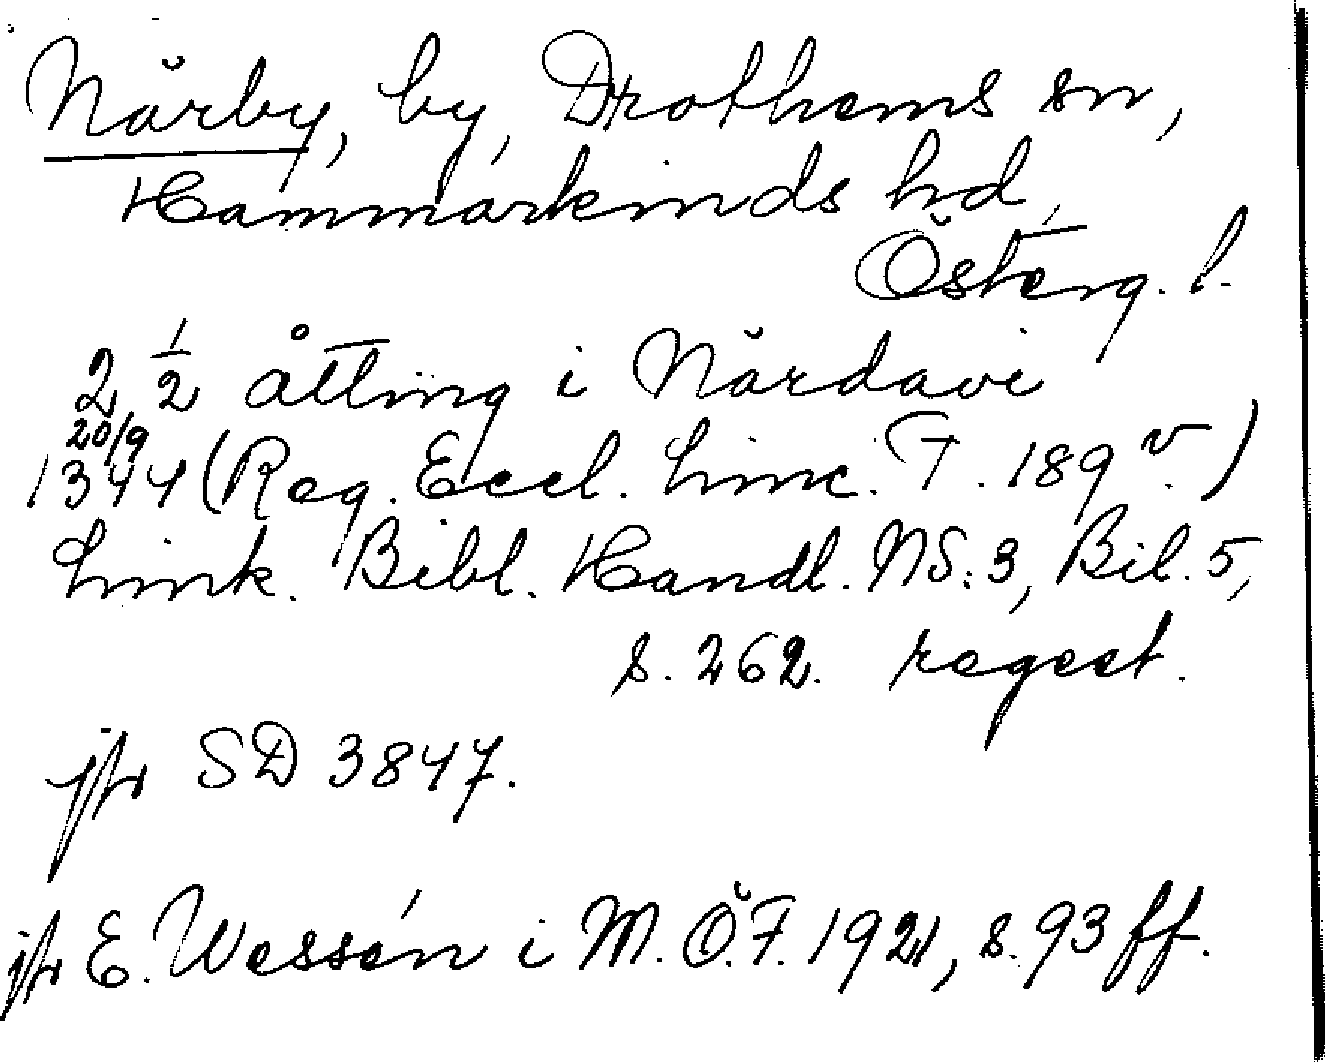 Närby, by, Drothems sn,
Hammarkinds hd,
Österg. l.
2 1/2 åtting i Närdavi
20/9
1344 (Reg. Eccl. Linc. F. 189 v.)
Link. Bibl. Handl. NS: 3, Bil. 5,
s. 262. regest.
jfr SD 3847.
jfr E. Wessén i M.Ö.F. 1921, s. 93 ff.